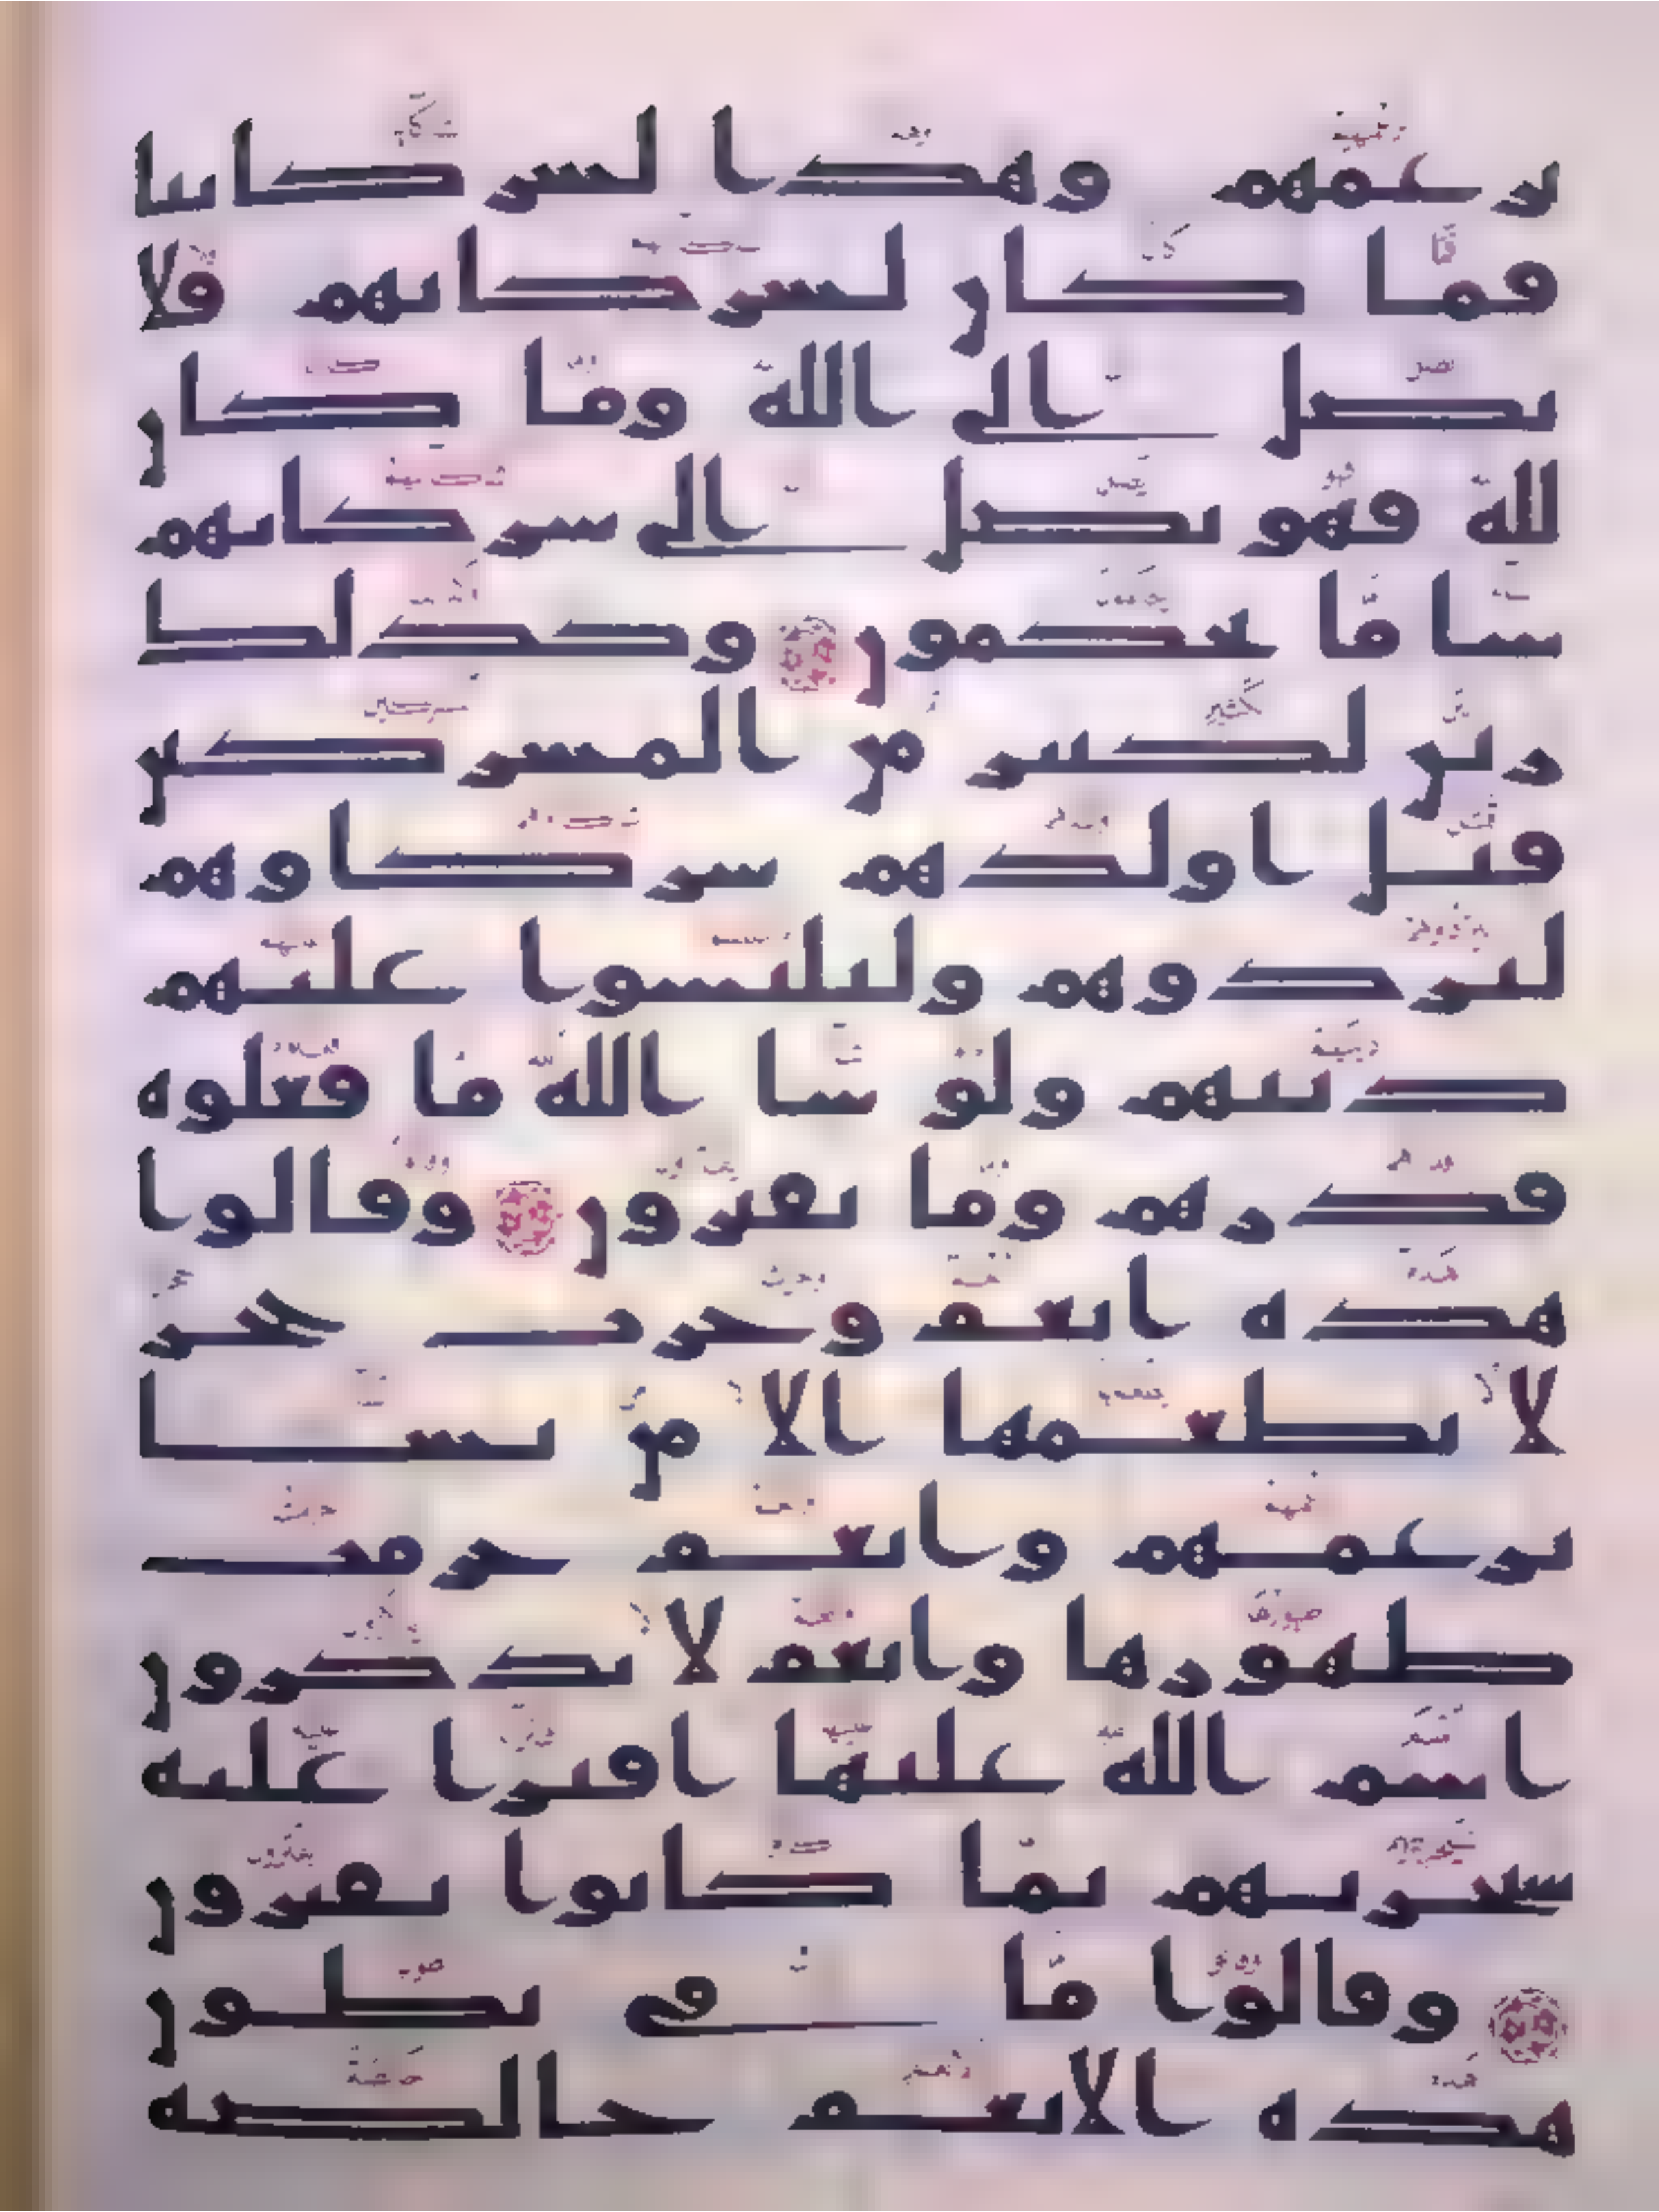 بزعمهم وهذا لشركائنا
فما كان لشركائهم فلا
يصل إلى الله وما كان
لله فهو يصل إلى شركائهم
سا ما يحكمون وكذلك
زين لكثير من المشركين
قتل أولدهم شركاؤهم
ليردوهم وليلبسوا عليهم
دينهم ولو شا الله ما فعلوه
فذرهم وما يفترون وقالوا
هذه أنعم وحرث حجر
لا يطعمها إلا من نشا
بزعمهم وأنعم حرمت
ظهورها وأنعم لا يذكرون
اسم الله عليها افترا عليه
سيجزيهم بما كانوا يفترون
وقالوا ما في بطون
هذه الأنعم خالصة